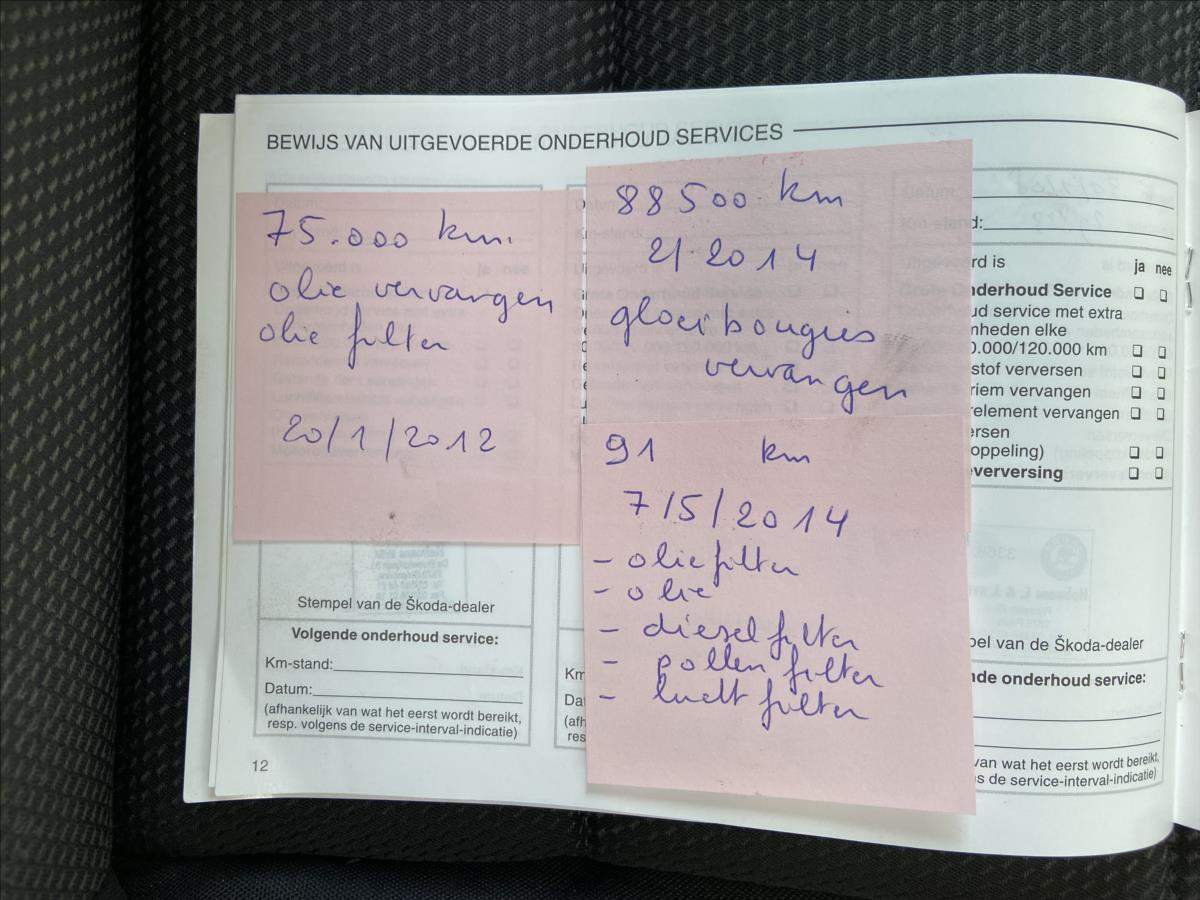 BEWIJS VAN UITGEVOERDE ONDERHOUD SERVICES
75.000 km.
olie vervangen
olie filter
20/1/2012
Stempel van de Škoda-dealer
Volgende onderhoud service:
Km-stand:
Datum:
(afhankelijk van wat het eerst wordt bereikt,
resp. volgens de service-interval-indicatie)
12
88500 km
2/ 2014
gloeibougies
vervangen
91 km
7/5/2014
- oliefilter
- olie
- dieselfilter
- pollen filter
- lucht filter
Km
Da
(afh
res
Datum
Km-stand:
rd is
ja nee
nderhoud Service
ud service met extra
nheden elke
0.000/120.000 km
stof verversen
riem vervangen
relement vervangen
ersen
oppeling)
verversing
pel van de Škoda-dealer
nde onderhoud service:
van wat het eerst wordt bereikt,
s de service-interval-indicatie)